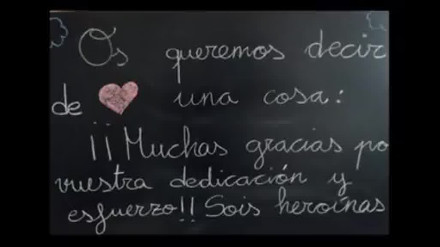 Os queremos decir
de una cosa:
¡¡Muchas gracias po
vuestra dedicación y
esfuerzo!! Sois heroínas